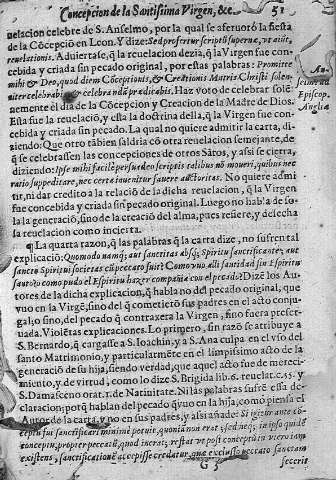 Concepcion de la Santissima Virgen, &c. 51
uelacion celebre de S. Anselmo, por la qual se aseuró la fiesta
de la Cõcepciõ en Leon. Y dize: Sed profertur scriptũ supernæ, vt aiũt,
reuelationis. Aduiertase, q̃ la reuelacion dezia, q̃ la Virgẽ fue con-
cebida y criada sin pecado original, por estas palabras: Promitte
mihi & Deo, quod diem Cõceptionis, & Creationis Matris Christi solen-
niter celebrabis & celebrandã prædicabis. Haz voto de celebrar solẽ-
nemente el dia de la Cõcepcion y Creacion de la Madre de Dios.
Esta fue la reuelaciõ, y esta la doctrina della, q̃ la Virgẽ fue con-
cebida y criada sin pecado. La qual no quiere admitir la carta, di-
ziendo: Que otro tãbien saldria cõ otra reuelacion semejante, de
q̃ se celebrassen las concepciones de otros Sãtos, y assi se cierra,
diziendo: Ipse mihi facilè persuadeo scriptis talibus nõ moueri, quibus nec
ratio suppeditare, nec certa inuenitur fauere authoritas. No quiere admi-
tir, ni dar credito a la relaciõ de la dicha reuelacion, q̃ la Virgẽ
fue concebida y criada sin pecado original. Luego no hab'a de so-
la la generaciõ, sino de la creacion del alma, pues refiere, y desecha
la reuelacion como incierta.
¶ La quarta razon, q̃ las palabras q̃ la carta dize, no sufren tal
explicaciõ: Quomodo namq; aut sanctitas absq; Spiritu sanctificante, aut
sancto Spiritui societas cũ peccato fuit? Como vuo alli santidad sin Espiritu
santo? o como pudo el Espiritu hazer compañia con el pecado? Dizẽ los Au-
tores de la dicha explicacion, q̃ habla no del pecado original, que
vuo en la Virgẽ, sino del q̃ cometiẽrõ sus padres en el acto conju-
gal; o sino, del pecado q̃ contraxera la Virgen, sino fuera preser-
uada. Violẽtas explicaciones. Lo primero, sin razõ se atribuye a
S. Bernardo, q̃ cargasse a S. Ioachin, y a S. Ana culpa en el vso del
santo Matrimonio, y particularmẽte en el limpissimo acto de la
generaciõ de su hija, siendo verdad, que aquel acto fue de mereci-
miento, y de virtud, como lo dize S. Brigida lib. 6. reuelat. 55. y
S. Damasceno orat. 1. de Natiuitate. Ni las palabras sufrẽ essa de-
claracion; porq̃ hablan del pecado q̃ vuo en la hija, como piensa el
Autor de la carta, y no en sus padres, y assi añade: Si igitur ante co-
ceptũ sui sanctificari minimè potuit, quoniã non erat; sed neq; in ipso quidẽ
conceptu, propter peccatũ, quod inerat; restat vt post conceptũ in vtero iam
existens, sanctificationẽ accepisse credatur, quæ excluso peccato sanctam
G 3 fecerit
Episcop.